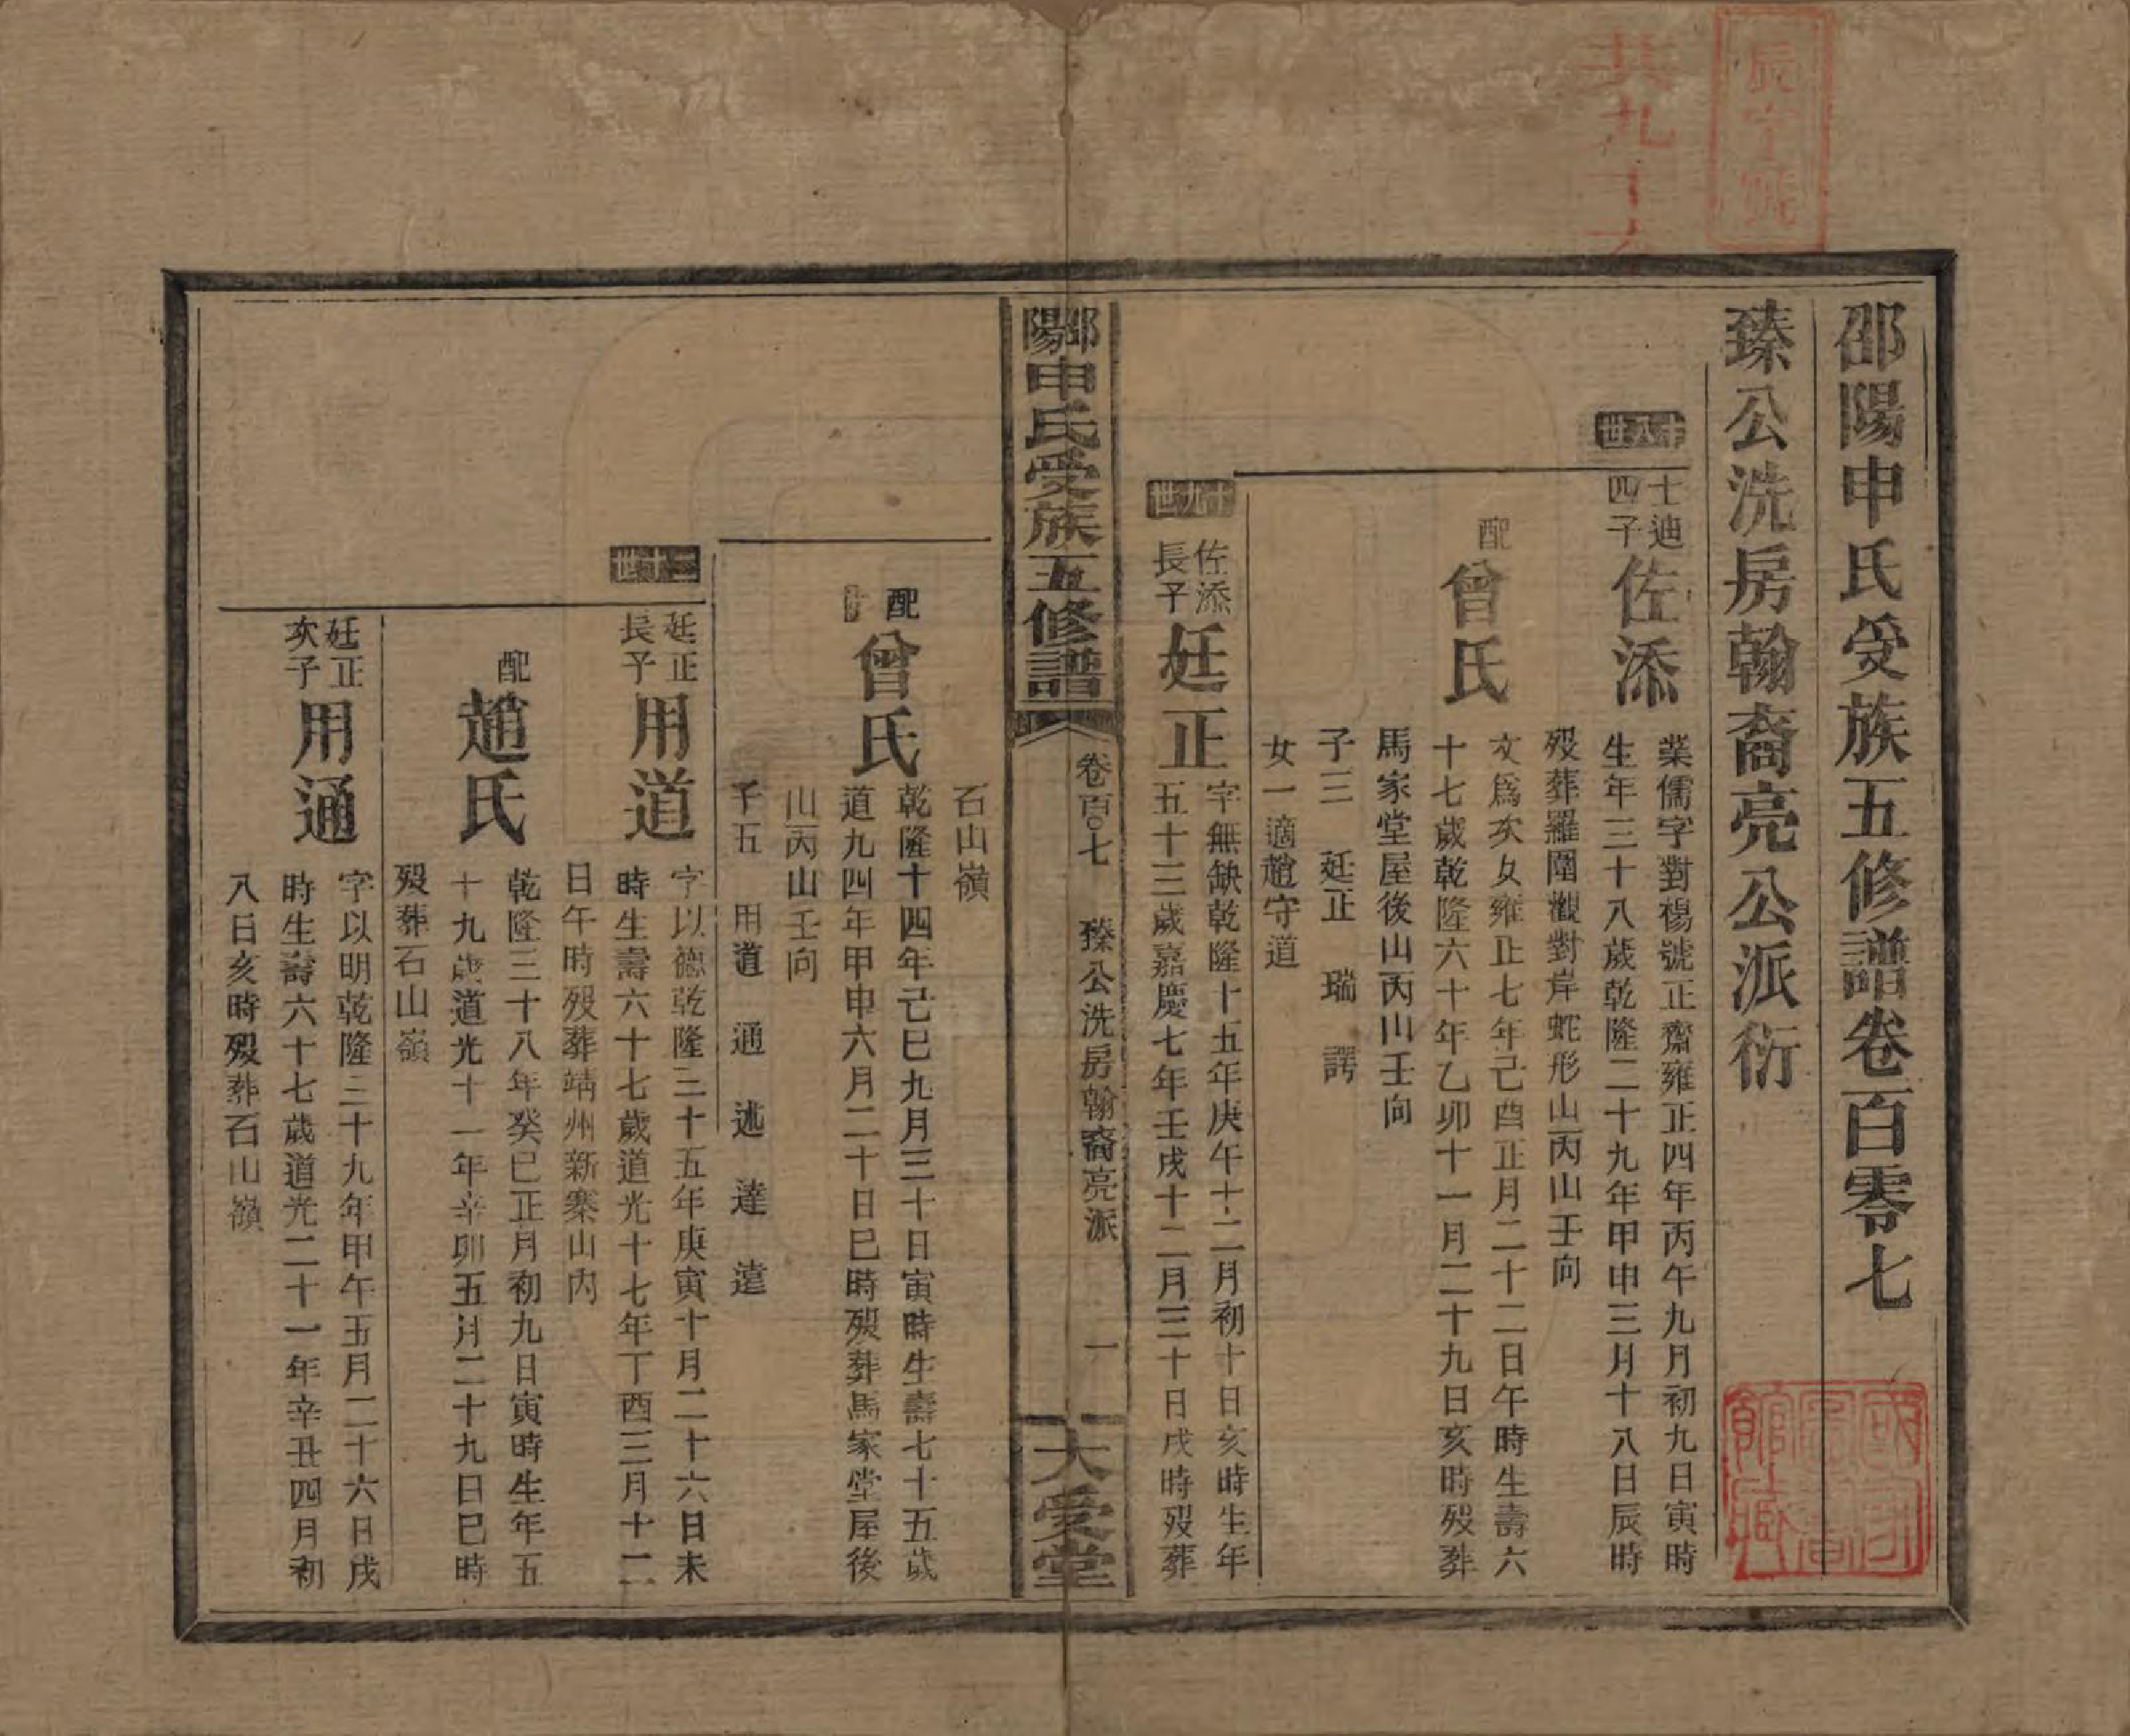 辰字號
共九丁
邵陽申氏受族五修譜卷百零七
臻公洗房翰裔亮公派衍
十八世
士迪四子
佐添
業儒字對楊號正齋雍正四年丙午九月初九日寅時
生年三十八歲乾隆二十九年甲申三月十八日辰時
歿葬羅圍觀對岸蛇形山丙山壬向
配
曾氏
文爲次女雍正七年己酉正月二十二日午時生壽六
十七歲乾隆六十年乙卯十一月二十九日亥時歿葬
馬家堂屋後山丙山壬向
子三 廷正 瑞 諤
女一適趙守道
十九世
佐添長子
廷正
字無缺乾隆十五年庚午十二月初十日亥時生年
五十三歲嘉慶七年壬戌十二月三十日戌時歿葬
邵陽申氏受族五修譜
卷百〇七
臻公洗房翰裔亮派
一
大受堂
石山嶺
配
曾氏
乾隆十四年己巳九月三十日寅時生壽七十五歲
道九四年甲申六月二十日巳時歿葬馬家堂屋後
山丙山壬向
子五 用道 通 述 達 遠
二十世
廷正長子
用道
字以德乾隆三十五年庚寅十月二十六日未
時生壽六十七歲道光十七年丁酉三月十二
日午時歿葬靖州新寨山內
配
趙氏
乾隆三十八年癸巳正月初九日寅時生年五
十九歲道光十一年辛卯五月二十九日巳時
歿葬石山嶺
廷正次子
用通
字以明乾隆三十九年甲午五月二十六日戌
時生壽六十七歲道光二十一年辛丑四月初
八日亥時歿葬石山嶺
國家圖書館藏